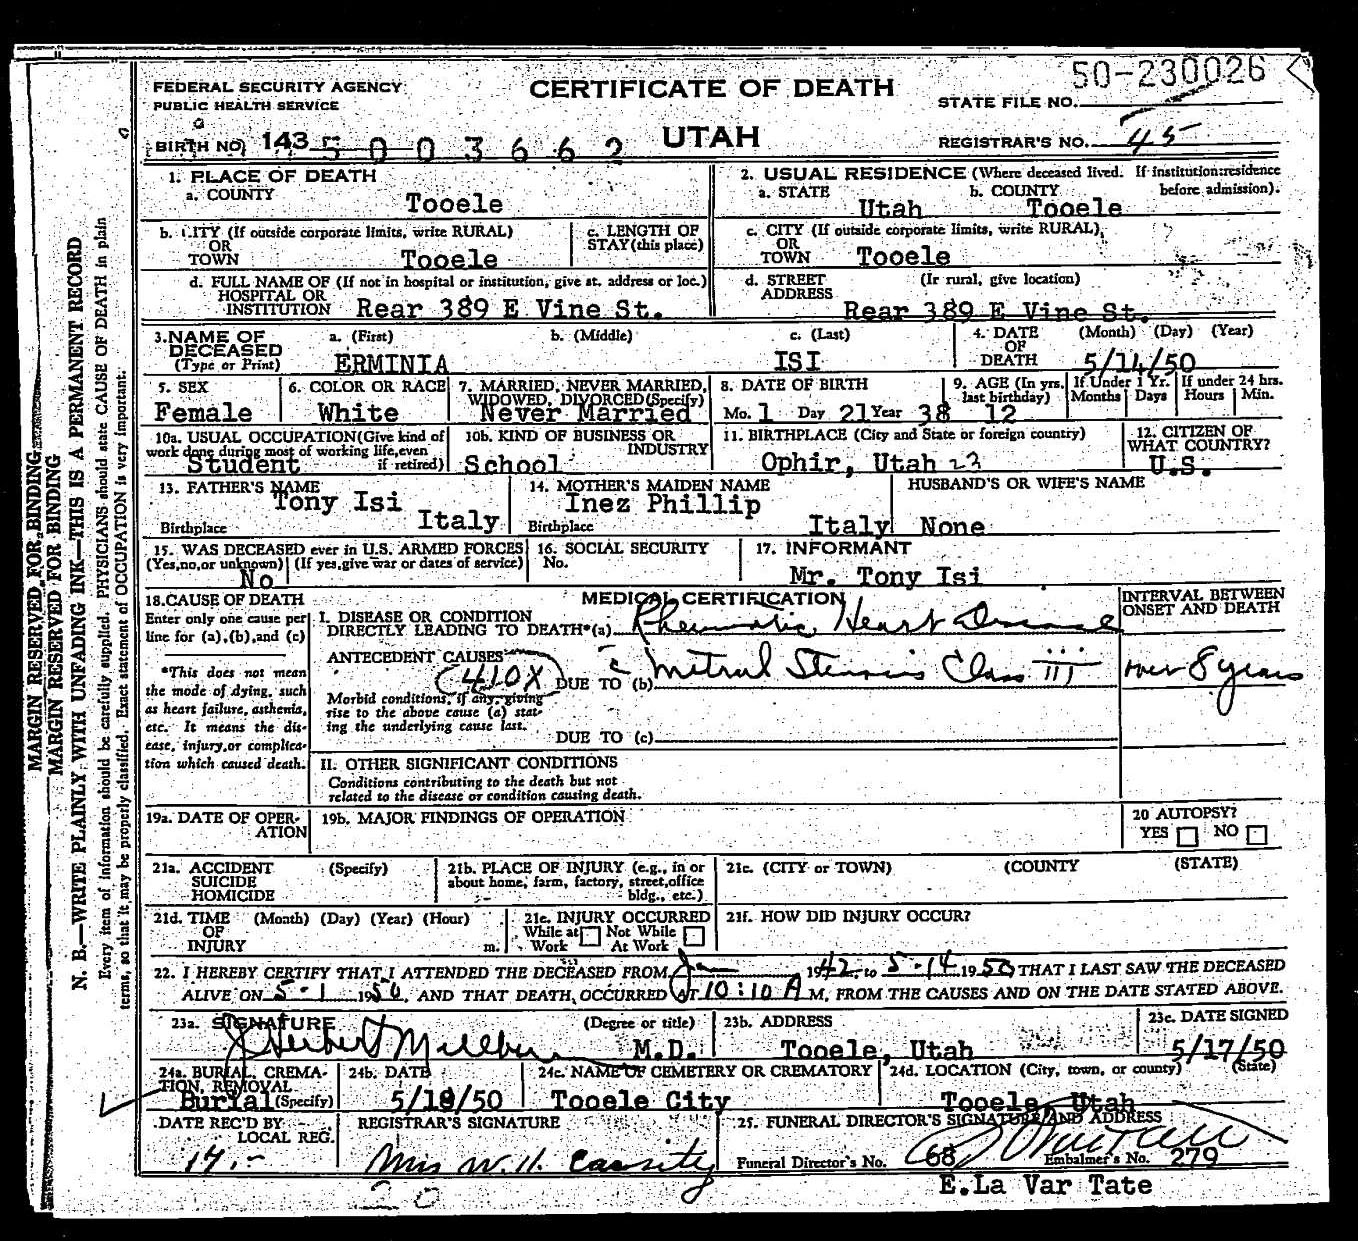 50-230026
FEDERAL SECURITY AGENCY
PUBLIC HEALTH SERVICE
CERTIFICATE OF DEATH
STATE FILE NO.
BIRTH NO. 143 5003662
UTAH
REGISTRAR'S NO. 45
1. PLACE OF DEATH
a. COUNTY
Tooele
2. USUAL RESIDENCE (Where deceased lived. If institution: residence before admission).
a. STATE b. COUNTY
Utah Tooele
b. CITY (If outside corporate limits, write RURAL)
OR
TOWN Tooele
c. LENGTH OF
STAY (this place)
c. CITY (If outside corporate limits, write RURAL)
OR
TOWN Tooele
d. FULL NAME OF (If not in hospital or institution, give st. address or loc.)
HOSPITAL OR
INSTITUTION Rear 389 E Vine St.
d. STREET (If rural, give location)
ADDRESS
Rear 389 E Vine St.
3. NAME OF a. (First) b. (Middle) c. (Last)
DECEASED
(Type or Print) ERMINIA ISI
4. DATE (Month) (Day) (Year)
OF
DEATH 5/14/50
5. SEX
Female
6. COLOR OR RACE
White
7. MARRIED, NEVER MARRIED,
WIDOWED, DIVORCED (Specify)
Never Married
8. DATE OF BIRTH
Mo. 1 Day 21 Year 38
9. AGE (In yrs. last birthday)
12
If Under 1 Yr.
Months Days
If under 24 hrs.
Hours Min.
10a. USUAL OCCUPATION (Give kind of
work done during most of working life, even
if retired)
Student
10b. KIND OF BUSINESS OR
INDUSTRY
School
11. BIRTHPLACE (City and State or foreign country)
Ophir, Utah 23
12. CITIZEN OF
WHAT COUNTRY?
U.S.
13. FATHER'S NAME
Tony Isi
Birthplace Italy
14. MOTHER'S MAIDEN NAME
Inez Phillip
Birthplace Italy
HUSBAND'S OR WIFE'S NAME
None
15. WAS DECEASED ever in U.S. ARMED FORCES
(Yes, no, or unknown) (If yes, give war or dates of service)
No
16. SOCIAL SECURITY
No.
17. INFORMANT
Mr. Tony Isi
18. CAUSE OF DEATH
Enter only one cause per
line for (a), (b), and (c)
*This does not mean
the mode of dying, such
as heart failure, asthenia,
etc. It means the dis-
ease, injury, or complica-
tion which caused death.
MEDICAL CERTIFICATION
INTERVAL BETWEEN
ONSET AND DEATH
I. DISEASE OR CONDITION
DIRECTLY LEADING TO DEATH*(a) Rheumatic Heart Disease
ANTECEDENT CAUSES
410X
DUE TO (b) c̄ Mitral Stenosis Class III over 8 years
Morbid conditions, if any, giving
rise to the above cause (a) stat-
ing the underlying cause last.
DUE TO (c)
II. OTHER SIGNIFICANT CONDITIONS
Conditions contributing to the death but not
related to the disease or condition causing death.
19a. DATE OF OPER-
ATION
19b. MAJOR FINDINGS OF OPERATION
20 AUTOPSY?
YES NO
21a. ACCIDENT (Specify)
SUICIDE
HOMICIDE
21b. PLACE OF INJURY (e.g., in or
about home, farm, factory, street, office
bldg., etc.)
21c. (CITY or TOWN) (COUNTY (STATE)
21d. TIME (Month) (Day) (Year) (Hour)
OF
INJURY m.
21e. INJURY OCCURRED
While at Not While
Work At Work
21f. HOW DID INJURY OCCUR?
22. I HEREBY CERTIFY THAT I ATTENDED THE DECEASED FROM Jan 1942, to 5-14 1950, THAT I LAST SAW THE DECEASED
ALIVE ON 5-1 1950, AND THAT DEATH OCCURRED AT 10:10 A M, FROM THE CAUSES AND ON THE DATE STATED ABOVE.
23a. SIGNATURE (Degree or title)
J Herbert Millburn M.D.
23b. ADDRESS
Tooele, Utah
23c. DATE SIGNED
5/17/50
24a. BURIAL, CREMA-
TION, REMOVAL
Burial (Specify)
24b. DATE
5/18/50
24c. NAME OF CEMETERY OR CREMATORY
Tooele City
24d. LOCATION (City, town, or county) (State)
Tooele, Utah
DATE REC'D BY
LOCAL REG.
17.-
REGISTRAR'S SIGNATURE
Mrs W. H. Cassity
25. FUNERAL DIRECTOR'S SIGNATURE AND ADDRESS
Funeral Director's No. 68 Embalmer's No. 279
E. La Var Tate
20
MARGIN RESERVED FOR BINDING
MARGIN RESERVED FOR BINDING
N. B.—WRITE PLAINLY WITH UNFADING INK—THIS IS A PERMANENT RECORD
Every item of information should be carefully supplied. PHYSICIANS should state CAUSE OF DEATH in plain
terms, so that it may be properly classified. Exact statement of OCCUPATION is very important.